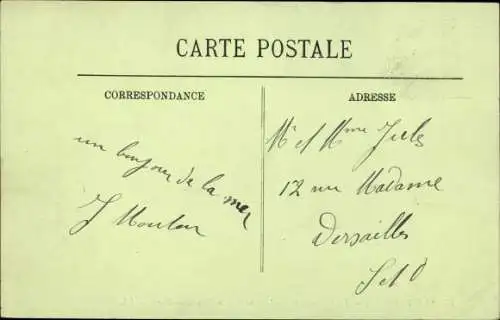 CARTE POSTALE
CORRESPONDANCE
ADRESSE
un bonjour de la mer
J Moulin
Mr et Mme Jules
12 rue Madame
Versailles
S et O